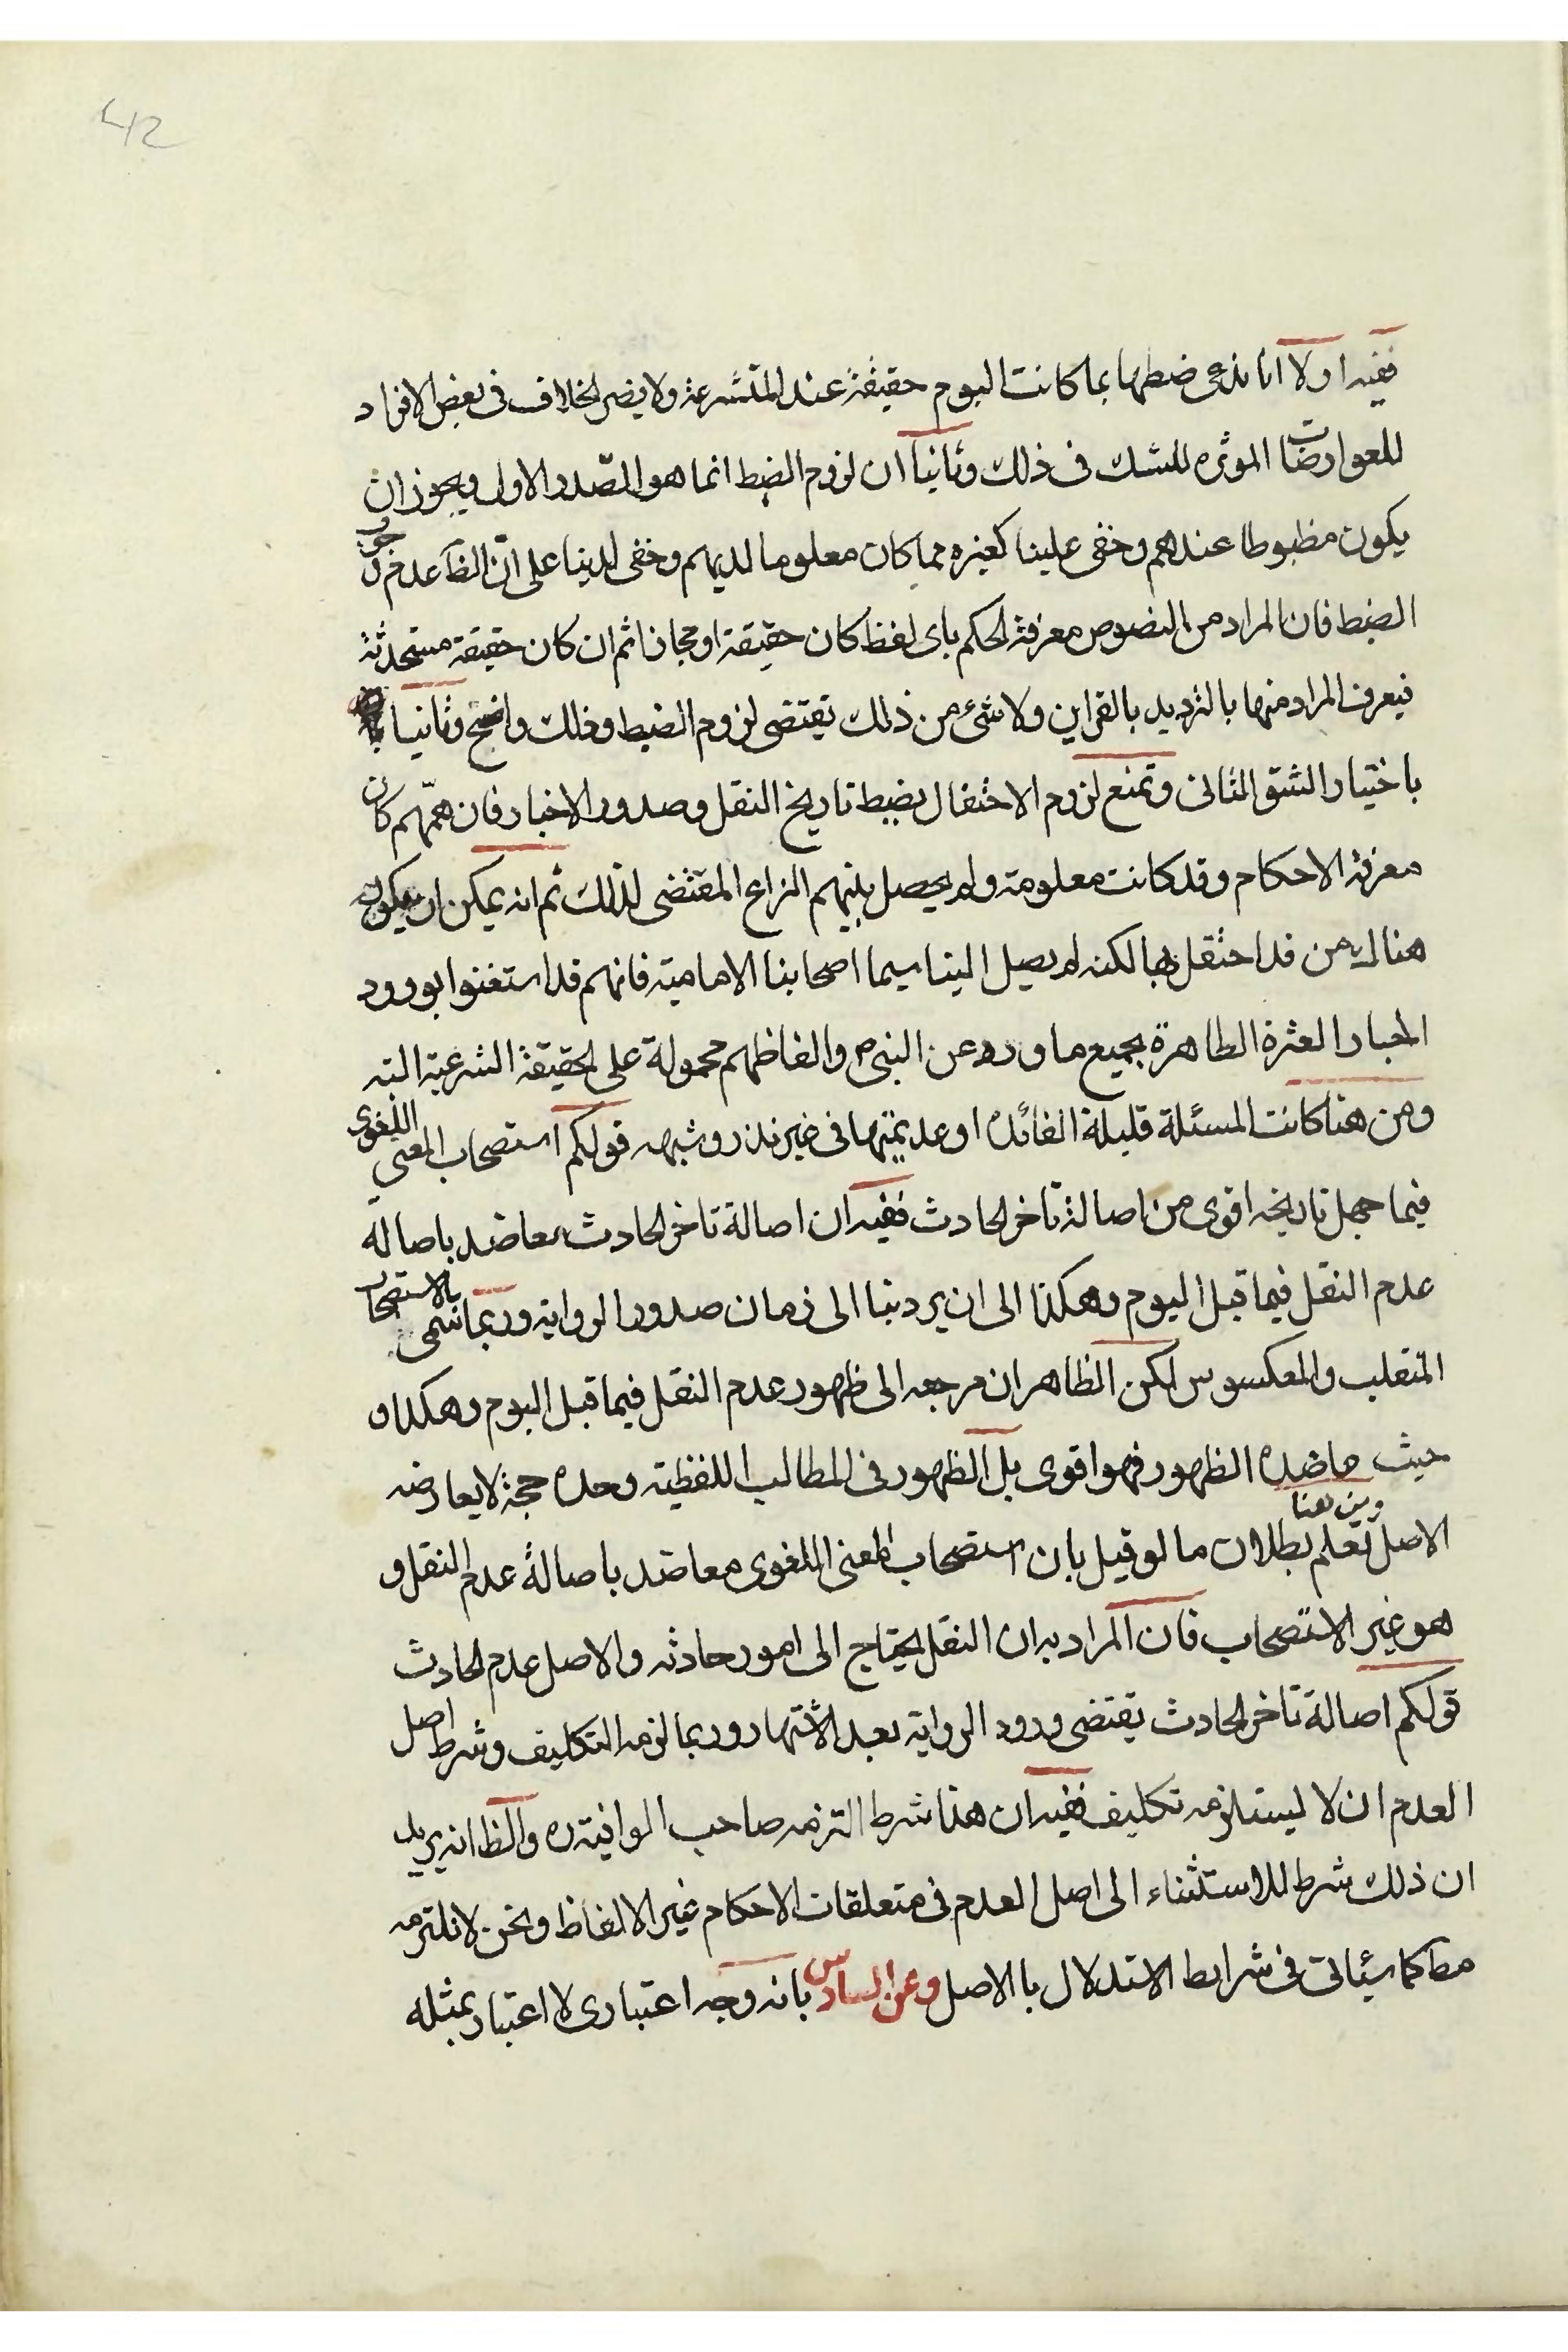 42
ففيه اولا انا ندعى ضبطها بما كانت اليوم حقيقة عند المتشرعة ولا يضر الخلاف فى بعض الافراد
للعوارضات الموثره للشك فى ذلك وثانيا ان لزوم الضبط انما هو للصدر الاول ويجوز ان
يكون مظبوطا عندهم وخفى علينا كغيره مما كان معلوما لديهم وخفى لدينا على ان الظ عدم لزوم
الضبط فان المراد من النصوص معرفة الحكم باى لفظ كان حقيقة او مجازا ثم ان كان حقيقة مستحدثة
فيعرف المراد منها بالترديد بالقراين ولا شىء من ذلك تقتضى لزوم الضبط وذلك واضح وثانيا
باختيار الشق الثانى وتمنع لزوم الاحتفال بضبط تاريخ النقل وصدور الاخبار فان همهم كان
معرفة الاحكام وقد كانت معلومة ولم يحصل بينهم النزاع المقتضى لذلك ثم انه يمكن ان يكون
هنالك من قد احتفل بها لكنه لم يصل الينا سيما اصحابنا الامامية فانهم قد استغنوا بورود
اخبار العترة الطاهرة بجميع ما ورد عن النبى ص والفاظهم محمولة على الحقيقة الشرعية البته
ومن هنا كانت المسئلة قليلة الفائده او عديمتها فى غير نذر وشبهه قولكم استصحاب المعنى اللغوى
فيما جهل تاريخه اقوى من اصالة تاخر الحادث ففيه ان اصالة تاخر الحادث معاضد باصالة
عدم النقل فيما قبل اليوم وهكذا الى ان يرد بنا الى زمان صدور الرواية وربما تسمى بالاستصحاب
المتقلب والمعكسوس لكن الظاهر ان مرجعه الى ظهور عدم النقل فيما قبل اليوم وهكذا و
حيث عاضده الظهور فهو اقوى بل الظهور فى المطالب اللفظية وحده حجة لا يعارضه
الاصل ومن هنا تعلم بطلان ما لو قيل بان استصحاب المعنى اللغوى معاضد باصالة عدم النقل و
هو غير الاستصحاب فان المراد به ان النقل يحتاج الى امور حادثه والاصل عدم الحادث
قولكم اصالة تاخر الحادث يقتضى ورود الرواية بعد الاشتهار وربما لزمه التكليف وشرط اصل
العدم ان لا ليستلزمه تكليف ففيه ان هذا شرط التزمه صاحب الوافية ره والظ انه يريد
ان ذلك شرط للاستثناء الى اصل العدم فى متعلقات الاحكام غير الالفاظ ونحن لا نلتزمه
مط كما سيئاتى فى شرايط الاستدلال با الاصل وعن السادس بانه وجه اعتبارى لا اعتبار بمثله